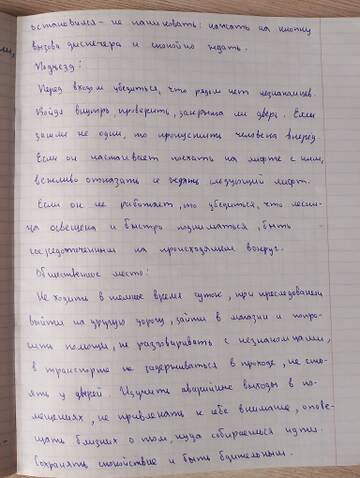 остановился - не паниковать: нажать на кнопку
вызова диспечера и спокойно ждать.
Подъезд:
Перед входом убедиться, что рядом нет незнакомцев.
Войдя внутрь, проверить, закрылась ли дверь. Если
зашли не одни, то пропустить человека вперед.
Если он настаивает поехать на лифте с ним,
вежливо отказать и ждать следующий лифт.
Если он не работает, то убедиться, что лестни-
ца освещена и быстро подниматься, быть
сосредоточенным на происходящем вокруг.
Общественное место:
Не ходить в темное время суток, при преследовании
выйти на другую дорогу, зайти в магазин и попро-
сить помощи, не разговаривать с незнакомцами,
в транспорте не задерживаться в проходе, не сто-
ять у дверей. Изучить аварийные выходы в по-
мещениях, не привлекать к себе внимание, опове-
щать близких о том, куда собираешься идти.
Сохранять спокойствие и быть бдительным.